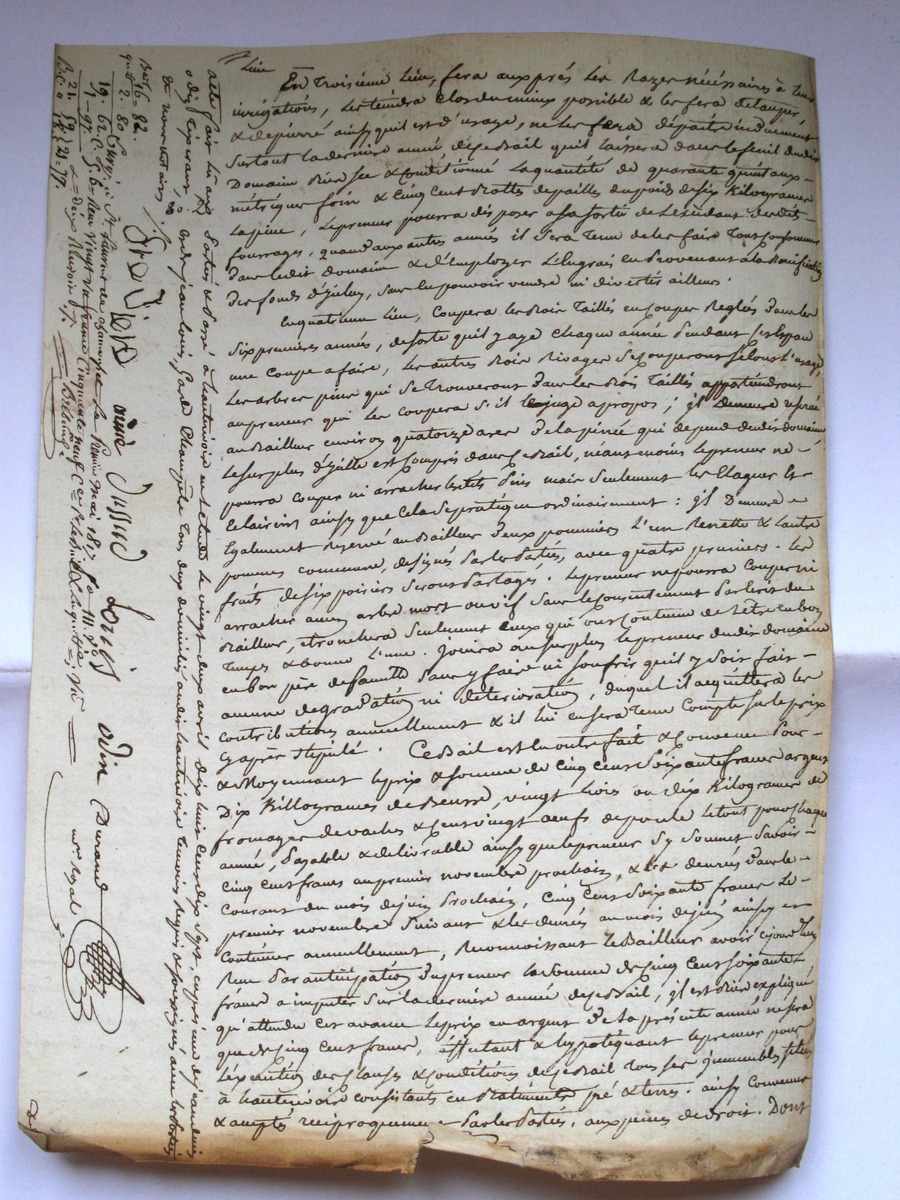 Lieu
En Troisième lieu, fera aux prés les Razes nécessaires à leur
irrigations, les tiendra clos du mieux possible & les fera détauper,
& dépierré ainsy quil est d'usage, ne les fera dépaitre induement
Surtout la dernière année de ce Bail qu'il laissera dans le fenil dudit
Domaine Bien sec & Conditionné la quantité de quarante quintaux
métriques foin & Cinq cent Bottes de pailles du poids de six Kilogrames
la piece, le preneur pourra disposer a sa sortie de l'excédant desdits
fourrages, quand aux autres années il Sera Tenu de les faire Tous consommer
dans ledit domaine & d'Employer l'Engrais en Provenant à la Bonification
des fonds d'ycelui, sans en pouvoir vendre ni divertir ailleurs.
En quatrième lieu, Coupera les Bois Taillis en Coupes Reglés dans les
Six premieres années, de sorte qu'il y aye chaque année Pendant cet espace
une Coupe a faire, les autres Bois Rivages Se Couperont selon l'usage,
les arbres pins qui se Trouveront dans les Bois Taillis appartiendront
au preneur qui les coupera s'il le juge a propos; il Demeure réservé
au Bailleur environ quatorze ares de la pinée qui dépend dudit domaine
le surplus d'ycelle est Compris dans ce Bail, néant moins le preneur ne
pourra couper ni arracher les dits Pins mais seulement les Elaguer et
Eclaircir ainsy que Cela se pratique ordinairement : il Demeure
Egalement Reservé au Bailleur deux pommiers l'un Renette & l'autre
pommes commune, designés Par les Parties, avec quatre pruniers. Les
fruits de six poiriers seront Partagés. Le preneur ne pourra couper ni
arracher aucun arbre mort ou vif Sans le Consentement Par écrit du
Bailleur, etronchera Seulement Ceux qui ont Coutume de l'etre en bon
Temps & bonne Lune. Jouira au Surplus le preneur dudit domaine
en bon père de famille Sans y faire ni soufrir qu'il y Soit fait
aucune degradation ni déterioration, duquel il acquittera les
contributions annuellement & il lui en sera Tenu Compte sur le prix
Cy après Stipulé. Ce Bail est En outre fait & Convenu Pour
& Moyennant le prix & somme de Cinq Cent Soixante francs argent
Dix Killogrames de Beurre, vingt livres ou Dix Kilogrames de
fromages de vaches & cent vingt oeufs de poule le tout pour chaque
année, Payable & delivrable ainsy que le preneur S'y Soumet Savoir
Cinq cent francs au premier novembre prochain, & les denrées dans le
courant du mois de juin Prochain, Cinq Cent Soixante francs le
premier novembre Suivant & les denrées au mois de juin ainsy en
Continuer annuellement, Reconnoissant le Bailleur avoir cejourd'huy
Reçu Par anticipation du preneur la Somme de Cinq Cent Soixante
francs a imputer Sur la dernière année de ce Bail, il est Bien expliqué
qu'attendu cet avance le prix en argent de la présente année ne sera
que de Cinq Cent francs, affectant & hypotéquant le preneur pour
l'éxécution des Clauses & Conditions de ce Bail Tous ses immeubles situés
à consistants en Batiments, pré & terres. ainsy Convenu
& accepté réciproquement Par les Parties, aux peines de droit. Dont
acte fait lu aux Parties & Passé à en l'étude le vingt deux avril dix huit Cent dix Sept, en présence de Jean denis
odin Tisserand, & de Jean Louis Tous deux témoins Requis & soussignés, avec les parties
& nous notaire
odin Jussac Louis odin Durand
nre royal
Bail 16 = 82.
qutt 2. 80
19. 62
1 = 97.
21. 59
Le mai 1817
vingt un francs Cinquante neuf C